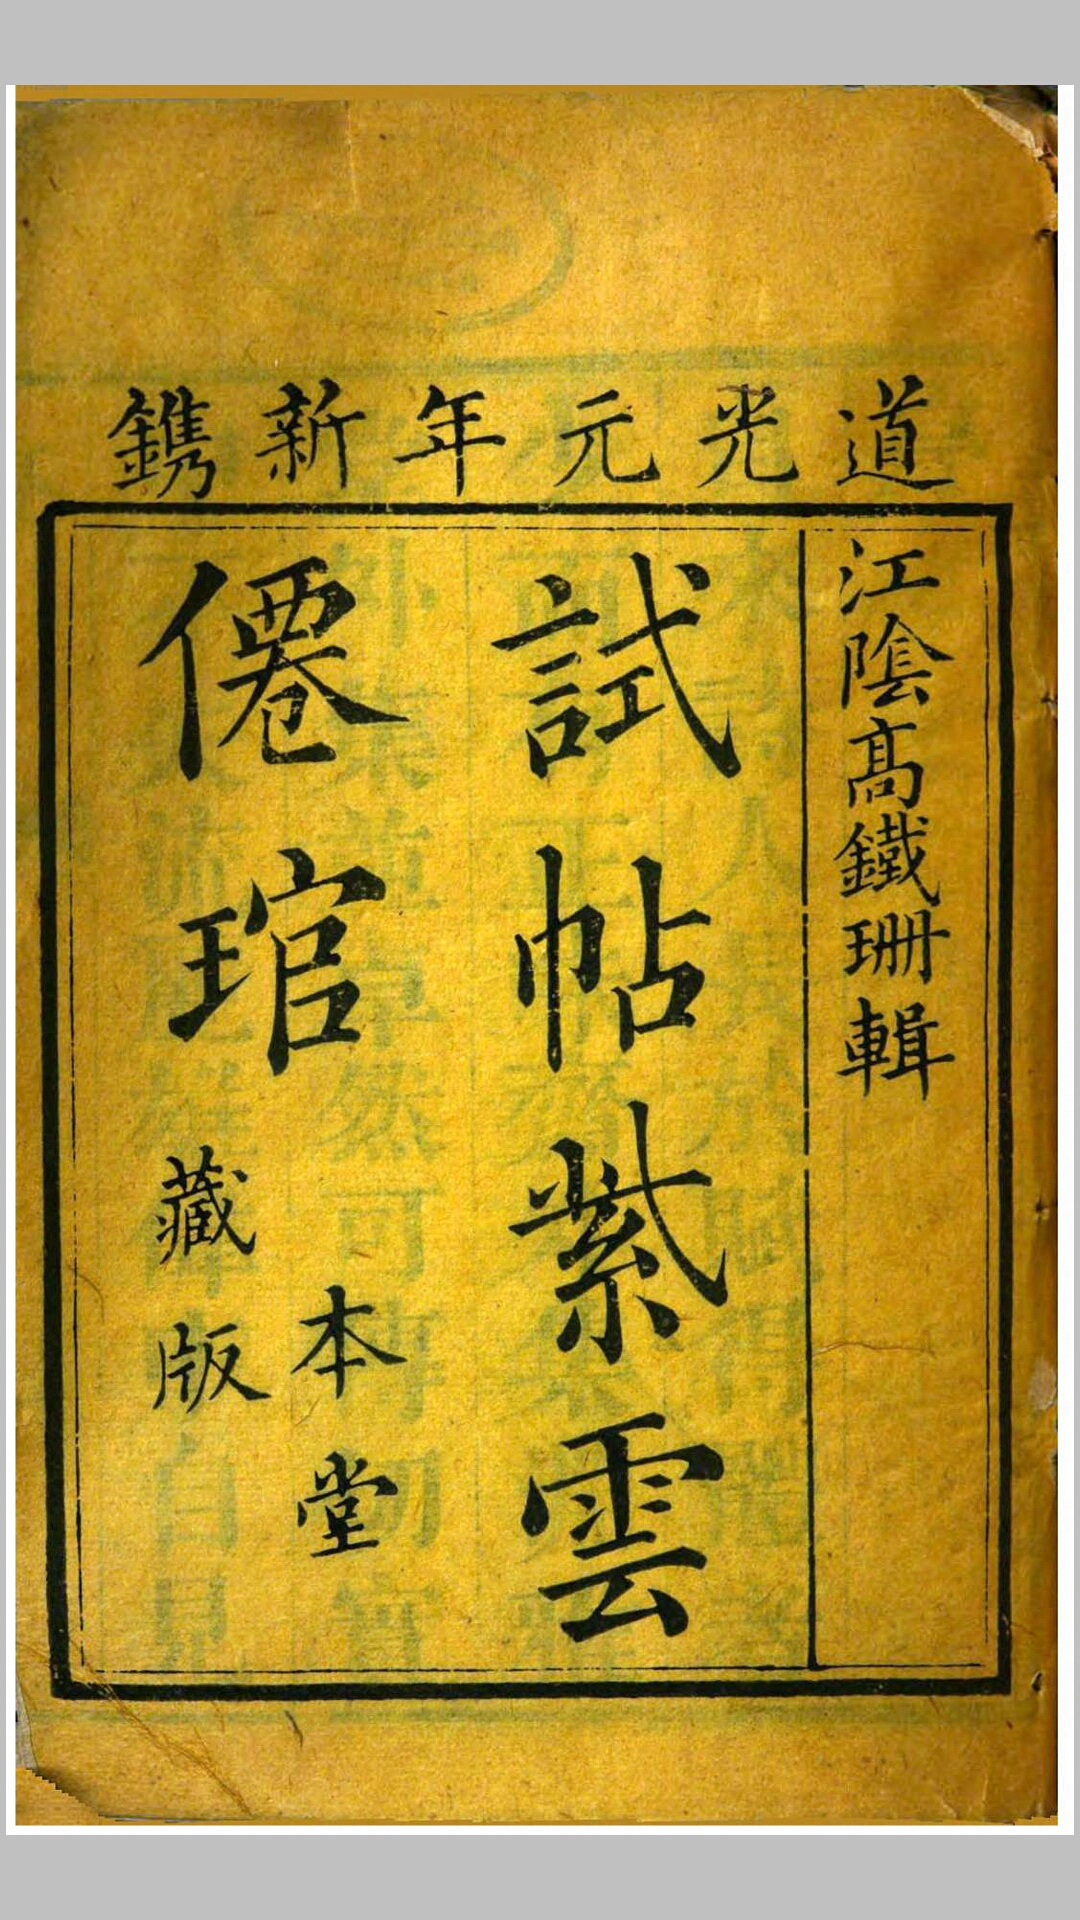 道光元年新鐫
江陰高鐵珊輯
試帖紫雲
僊琯
本堂
藏版